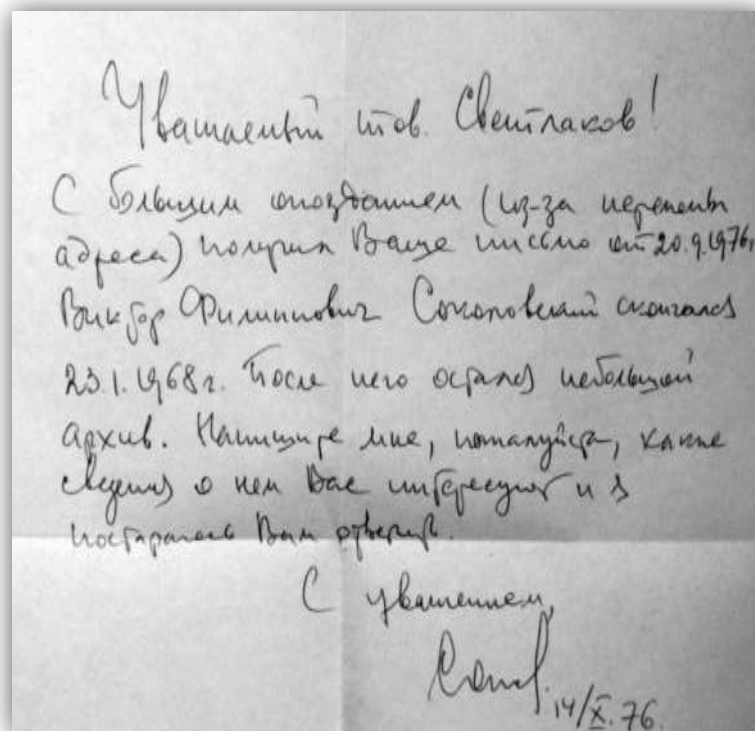 Уважаемый тов. Светлаков!
С большим опозданием (из-за перемены
адреса) получил Ваше письмо от 20.9.1976г.
Виктор Филиппович Соколовский скончался
23.1.1968г. После него остался небольшой
архив. Напишите мне, пожалуйста, какие
сведения о нем Вас интересуют и я
постараюсь Вам ответить.
С уважением,
14/X.76.